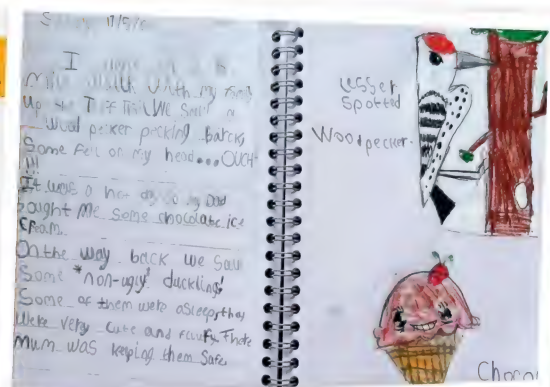 17/5/
I
Mile walk with my family
Up the We saw a
Wood pecker pecking barck,
Some fell on my head...OUCH
!!!
It was a hot day so my Dad
bought me some chocolate ice
cream.
On the way back we saw
Some "non-ugly" ducklings!
Some of them were asleep, they
were very cute and fluffy. There
Mum was keeping them safe
Lesser
Spotted
Woodpecker.
Choco